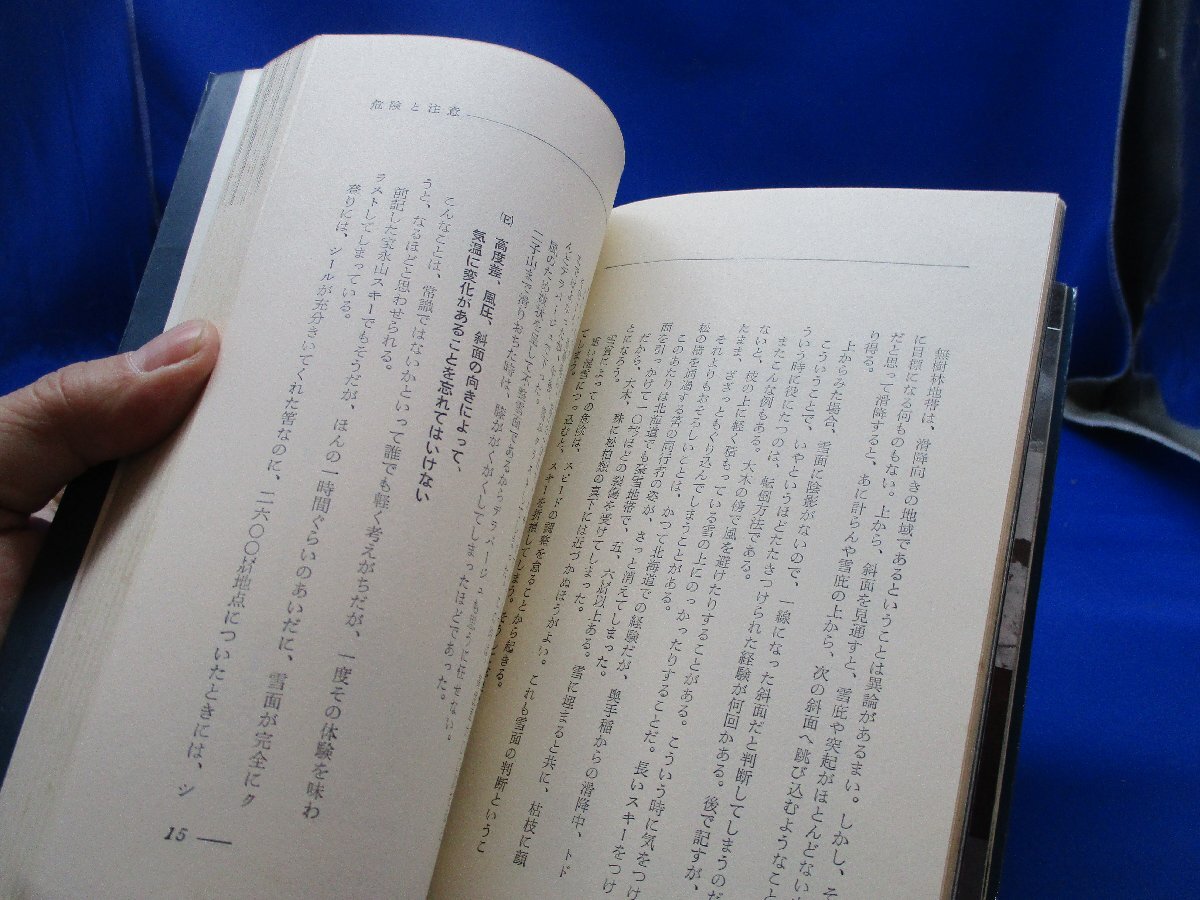 無樹林地帯は、滑降向きの地域であるということは異論があるまい。しかし、そ
に目標になる何ものもない。上から、斜面を見通すと、雪庇や突起がほとんどない
だと思って滑降すると、あに計らんや雪庇の上から、次の斜面へ跳び込むようなこと
り得る。
上からみた場合、雪面に陰影がないので、一線になった斜面だと判断してしまうのだ
こういうことで、いやというほどたたきつけられた経験が何回かある。後で記すが、
ういう時に役にたつのは、転倒方法である。
またこんな例もある。大木の傍で風を避けたりすることがある。こういう時に気をつけ
ないと、枝の上に軽く積もっている雪の上にのっかったりすることだ。長いスキーをつけ
たまま、ざざっともぐり込んでしまうことがある。
それよりもおそろしいことは、かつて北海道での経験だが、奥手稲からの滑降中、トド
松の傍を通過する筈の同行者の姿が、さっと消えてしまった。雪に埋まると共に、枯枝に顔
面を引っかけて一〇㌢ほどの裂傷を受けてしまった。
このあたりは北海道でも豪雪地帯で、五、六㍍以上ある。
だから、大木、殊に松柏類の真下には近づかぬほうがよい。これも雪面の判断というこ
とになろう。
スピードの調整を怠ることから起きる。
スキーを折損してしまう。
危険と注意
二子山まで滑りおちた時は、膝ががくがくしてしまったほどであった。
(E) 高度差、風圧、斜面の向きによって、
気温に変化があることを忘れてはいけない
こんなことは、常識ではないかといって誰でも軽く考えがちだが、一度その体験を味わ
うと、なるほどと思わせられる。
前記した宝永山スキーでもそうだが、ほんの一時間ぐらいのあいだに、雪面が完全にク
ラストしてしまっている。
登りには、シールが充分きいてくれた筈なのに、二六〇〇㍍地点についたときには、シ
15